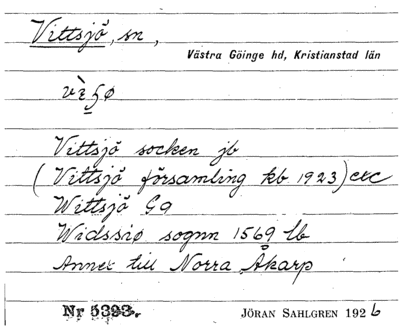 Vittsjö, sn,
Västra Göinge hd, Kristianstad län
Vittsjö socken jb
(Vittsjö församling kb 1923) etc
Wittsjö G9
Widssiø sognn 1569 lb
Annex till Norra Åkarp
Nr 5393.
JÖRAN SAHLGREN 1926